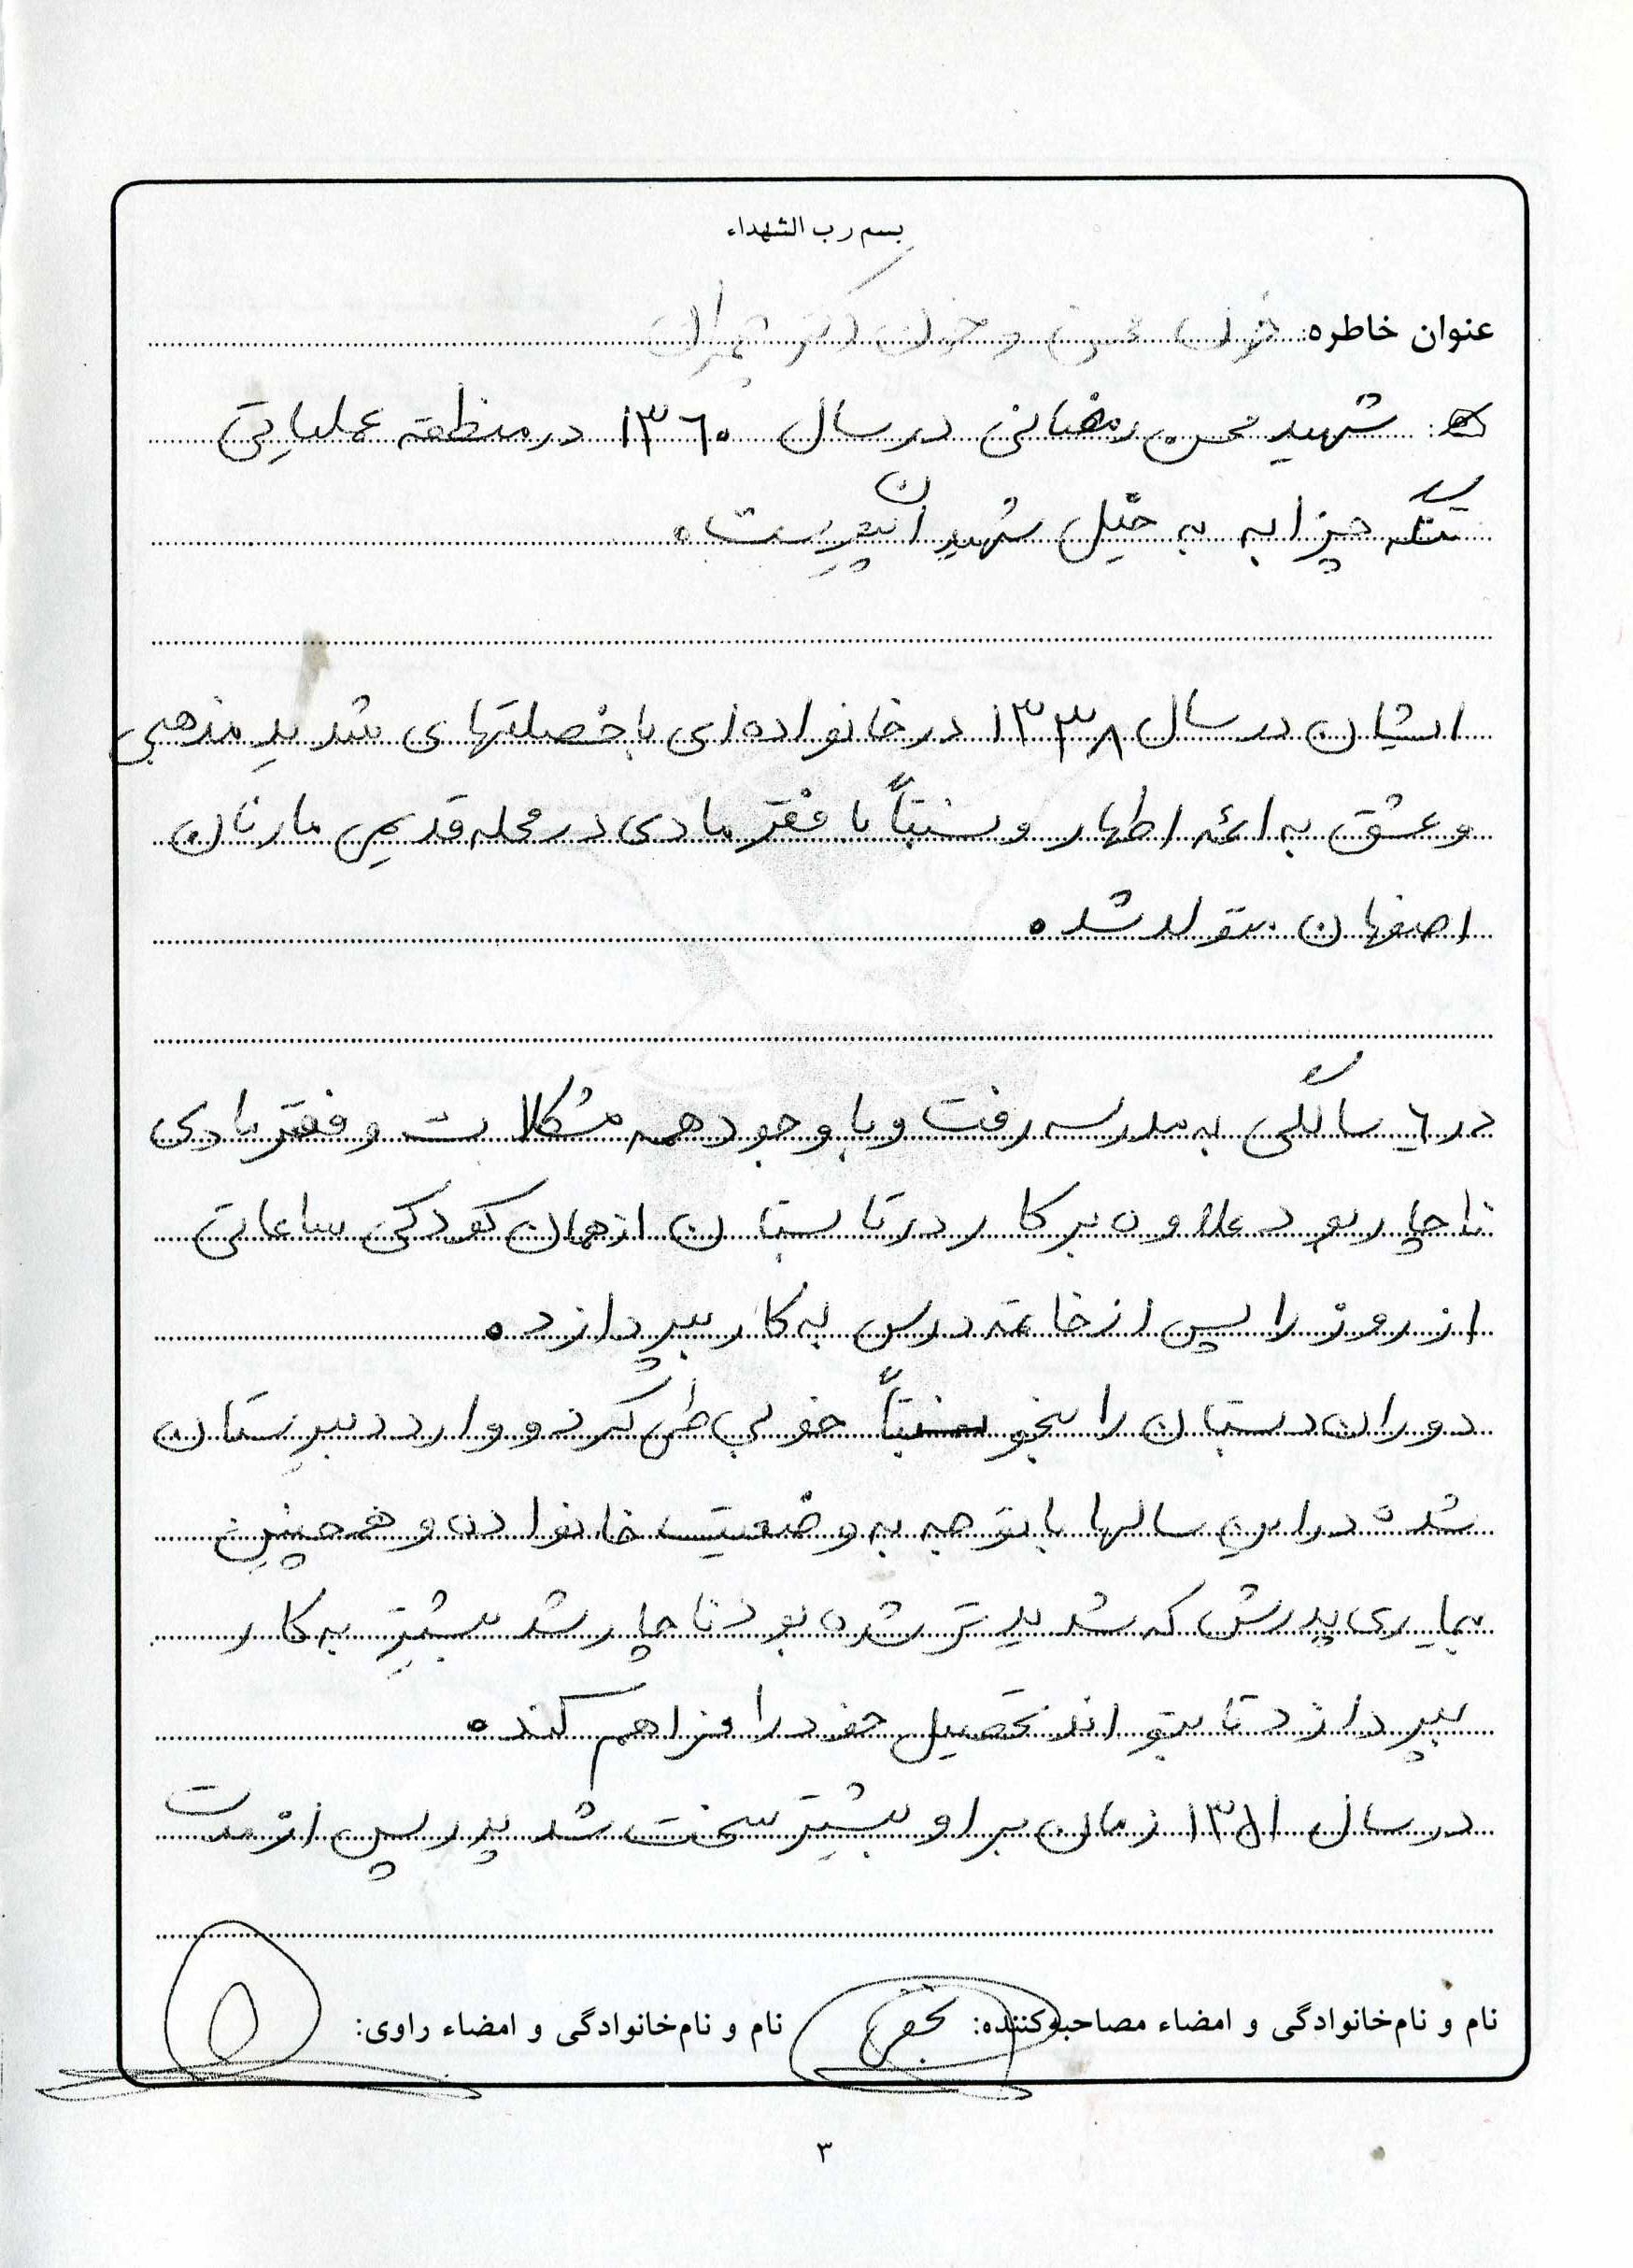 بسم رب الشهداء
عنوان خاطره: خون محسن و خون دکتر چمران
شهید محسن رمضانی در سال ۱۳۶۰ در منطقه عملیاتی
تنگه چزابه به خیل شهیدان پیوست.
ایشان در سال ۱۳۳۸ در خانواده ای با خصلتهای شدید مذهبی
و عشق به ائمه اطهار و نسبتاً با فقر مادی در محله قدیمی مارنان
اصفهان متولد شد.
در ۶ سالگی به مدرسه رفت و با وجود همه مشکلات و فقر مادی
ناچار بود علاوه بر کار در تابستان از همان کودکی ساعاتی
از روز را پس از خاتمه درس به کار بپردازد.
دوران دبستان را بنحو نسبتاً خوبی طی کرد و وارد دبیرستان
شد. در این سالها با توجه به وضعیت خانواده و همچنین
بیماری پدرش که شدیدتر شده بود ناچار شد بیشتر به کار
بپردازد تا بتواند تحصیل خود را فراهم کند.
در سال ۱۳۵۱ زمان بر او بیشتر سخت شد پدر پس از مدت
نام و نام‌خانوادگی و امضاء مصاحبه‌کننده:
نام و نام‌خانوادگی و امضاء راوی:
۳